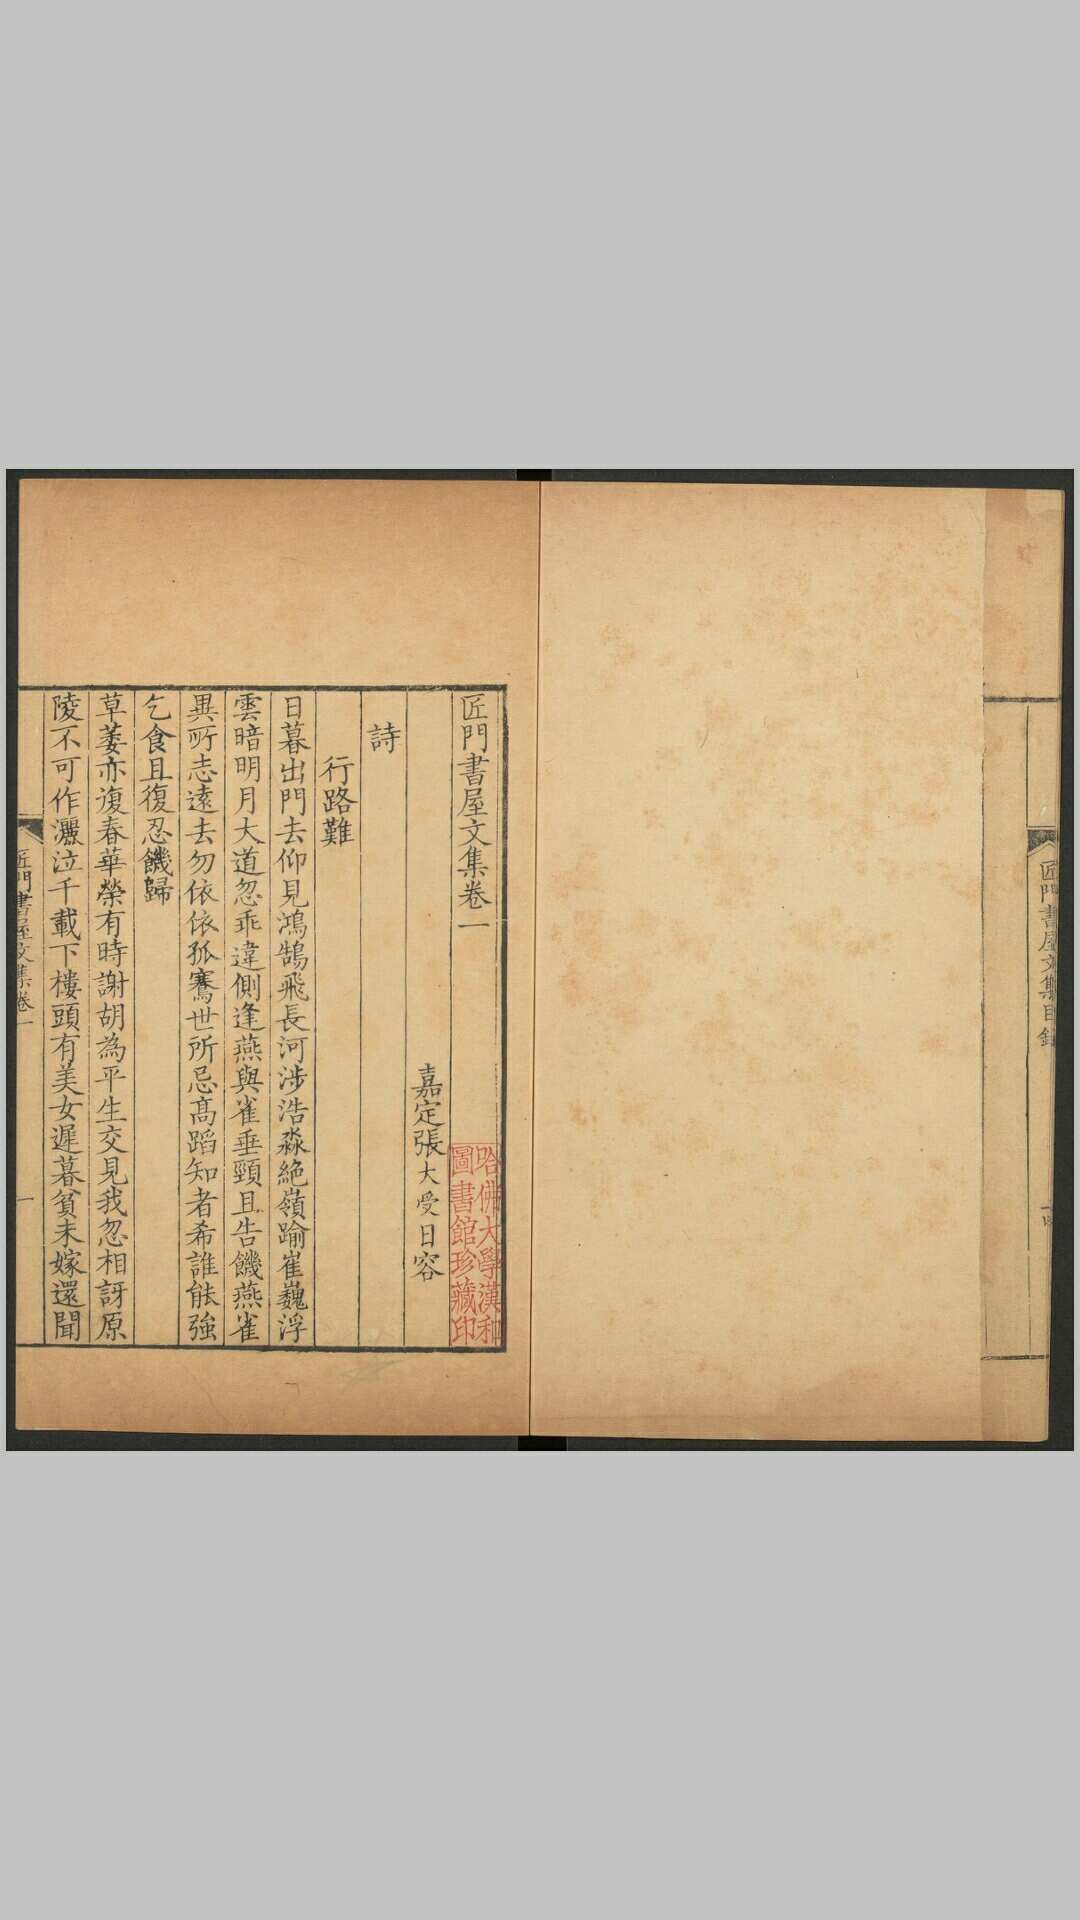 匠門書屋文集目錄
匠門書屋文集卷一
哈佛大學漢和
圖書館珍藏印
嘉定張大受日容
詩
行路難
日暮出門去仰見鴻鵠飛長河涉浩淼絶嶺踰崔巍浮
雲暗明月大道忽乖違側逢燕與雀垂頸且告饑燕雀
異所志遠去勿依依孤騫世所忌高蹈知者希誰能強
乞食且復忍饑歸
草萎亦復春華榮有時謝胡為平生交見我忽相訝原
陵不可作灑泣千載下樓頭有美女遲暮貧未嫁還聞
匠門書屋文集卷一
一